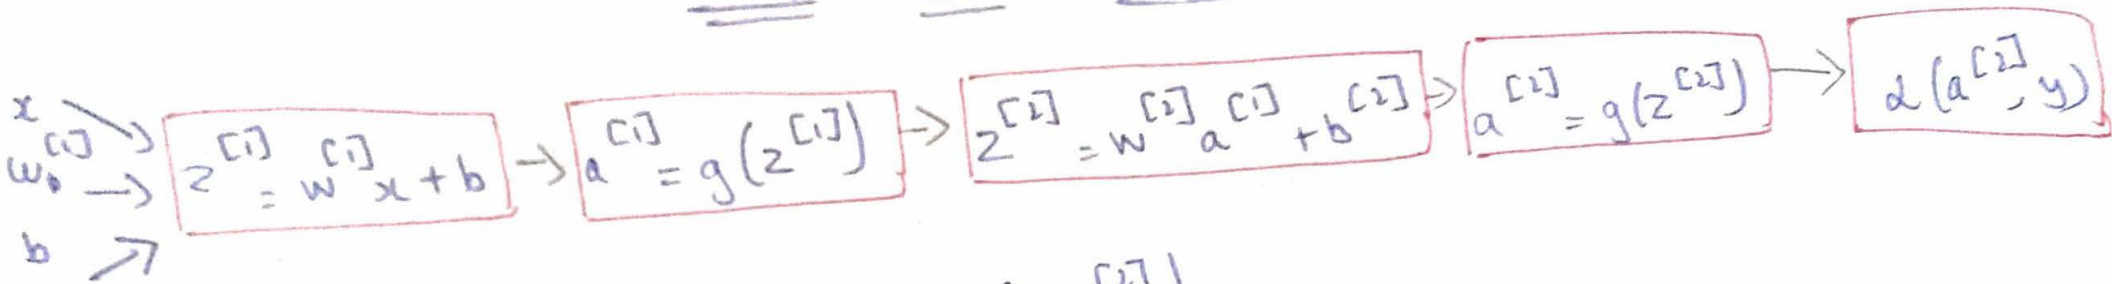 x
w^[1]
b
z^[1] = w^[1] x + b → a^[1] = g(z^[1]) → z^[2] = w^[2] a^[1] + b^[2] → a^[2] = g(z^[2]) → L(a^[2], y)
[2]